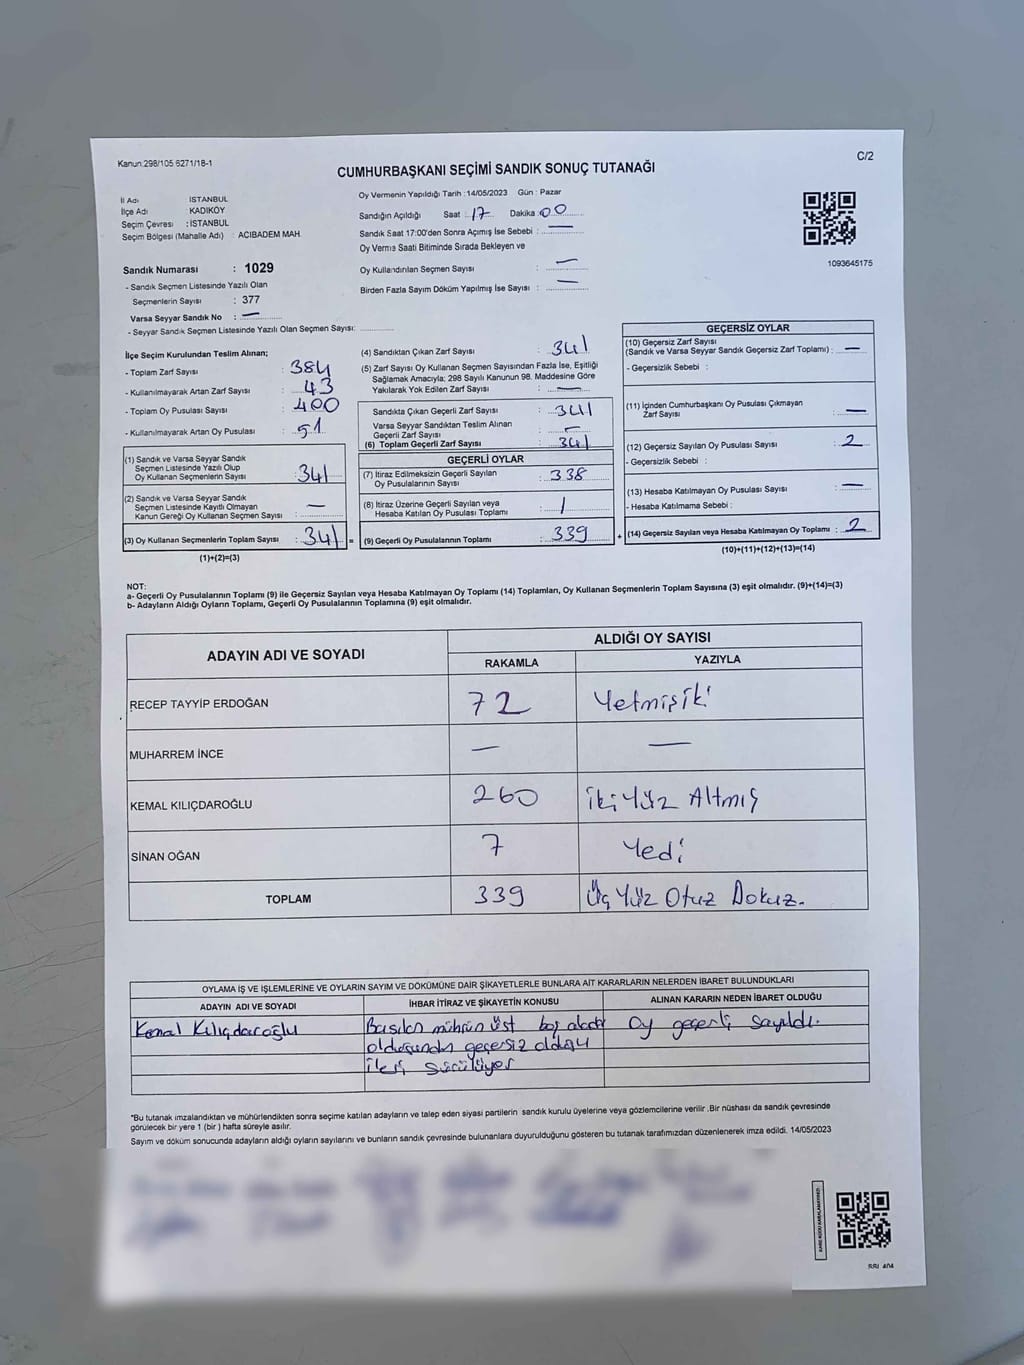 Kanun:298/105 6271/18-1
C/2
CUMHURBAŞKANI SEÇİMİ SANDIK SONUÇ TUTANAĞI
İl Adı İSTANBUL
İlçe Adı KADIKÖY
Seçim Çevresi : İSTANBUL
Seçim Bölgesi (Mahalle Adı) : ACIBADEM MAH.
Oy Vermenin Yapıldığı Tarih : 14/05/2023 Gün : Pazar
Sandığın Açıldığı Saat : 17 Dakika : 00
Sandık Saat 17:00'den Sonra Açımış İse Sebebi : —
Oy Verme Saati Bitiminde Sırada Bekleyen ve
Oy Kullandırılan Seçmen Sayısı : —
Birden Fazla Sayım Döküm Yapılmış İse Sayısı : —
1093645175
Sandık Numarası : 1029
- Sandık Seçmen Listesinde Yazılı Olan
Seçmenlerin Sayısı : 377
Varsa Seyyar Sandık No : —
- Seyyar Sandık Seçmen Listesinde Yazılı Olan Seçmen Sayısı:
İlçe Seçim Kurulundan Teslim Alınan;
- Toplam Zarf Sayısı : 384
- Kullanılmayarak Artan Zarf Sayısı : 43
- Toplam Oy Pusulası Sayısı : 400
- Kullanılmayarak Artan Oy Pusulası : 51
(1) Sandık ve Varsa Seyyar Sandık
Seçmen Listesinde Yazılı Olup
Oy Kullanan Seçmenlerin Sayısı : 341
(2) Sandık ve Varsa Seyyar Sandık
Seçmen Listesinde Kayıtlı Olmayan
Kanun Gereği Oy Kullanan Seçmen Sayısı : —
(3) Oy Kullanan Seçmenlerin Toplam Sayısı : 341 =
(1)+(2)=(3)
(4) Sandıktan Çıkan Zarf Sayısı : 341
(5) Zarf Sayısı Oy Kullanan Seçmen Sayısından Fazla İse, Eşitliği
Sağlamak Amacıyla; 298 Sayılı Kanunun 98. Maddesine Göre
Yakılarak Yok Edilen Zarf Sayısı : —
Sandıkta Çıkan Geçerli Zarf Sayısı : 341
Varsa Seyyar Sandıktan Teslim Alınan
Geçerli Zarf Sayısı : —
(6) Toplam Geçerli Zarf Sayısı : 341
GEÇERLİ OYLAR
(7) İtiraz Edilmeksizin Geçerli Sayılan
Oy Pusulalarının Sayısı : 338
(8) İtiraz Üzerine Geçerli Sayılan veya
Hesaba Katılan Oy Pusulası Toplamı : 1
(9) Geçerli Oy Pusulalarının Toplamı : 339 +
GEÇERSİZ OYLAR
(10) Geçersiz Zarf Sayısı
(Sandık ve Varsa Seyyar Sandık Geçersiz Zarf Toplamı) : —
- Geçersizlik Sebebi :
(11) İçinden Cumhurbaşkanı Oy Pusulası Çıkmayan
Zarf Sayısı : —
(12) Geçersiz Sayılan Oy Pusulası Sayısı : 2
- Geçersizlik Sebebi :
(13) Hesaba Katılmayan Oy Pusulası Sayısı : —
- Hesaba Katılmama Sebebi :
(14) Geçersiz Sayılan veya Hesaba Katılmayan Oy Toplamı : 2
(10)+(11)+(12)+(13)=(14)
NOT:
a- Geçerli Oy Pusulalarının Toplamı (9) ile Geçersiz Sayılan veya Hesaba Katılmayan Oy Toplamı (14) Toplamları, Oy Kullanan Seçmenlerin Toplam Sayısına (3) eşit olmalıdır. (9)+(14)=(3)
b- Adayların Aldığı Oyların Toplamı, Geçerli Oy Pusulalarının Toplamına (9) eşit olmalıdır.
ADAYIN ADI VE SOYADI
ALDIĞI OY SAYISI
RAKAMLA YAZIYLA
RECEP TAYYİP ERDOĞAN 72 Yetmişiki
MUHARREM İNCE — —
KEMAL KILIÇDAROĞLU 260 İki Yüz Altmış
SİNAN OĞAN 7 Yedi
TOPLAM 339 Üç Yüz Otuz Dokuz.
OYLAMA İŞ VE İŞLEMLERİNE VE OYLARIN SAYIM VE DÖKÜMÜNE DAİR ŞİKAYETLERLE BUNLARA AİT KARARLARIN NELERDEN İBARET BULUNDUKLARI
ADAYIN ADI VE SOYADI İHBAR İTİRAZ VE ŞİKAYETİN KONUSU ALINAN KARARIN NEDEN İBARET OLDUĞU
Kemal Kılıçdaroğlu Basılan mührün üst boş alanda Oy geçerli sayıldı.
olduğundan geçersiz olduğu
ileri sürülüyor
*Bu tutanak imzalandıktan ve mühürlendikten sonra seçime katılan adayların ve talep eden siyasi partilerin sandık kurulu üyelerine veya gözlemcilerine verilir .Bir nüshası da sandık çevresinde
görülecek bir yere 1 (bir ) hafta süreyle asılır.
Sayım ve döküm sonucunda adayların aldığı oyların sayılarını ve bunların sandık çevresinde bulunanlara duyurulduğunu gösteren bu tutanak tarafımızdan düzenlenerek imza edildi. 14/05/2023